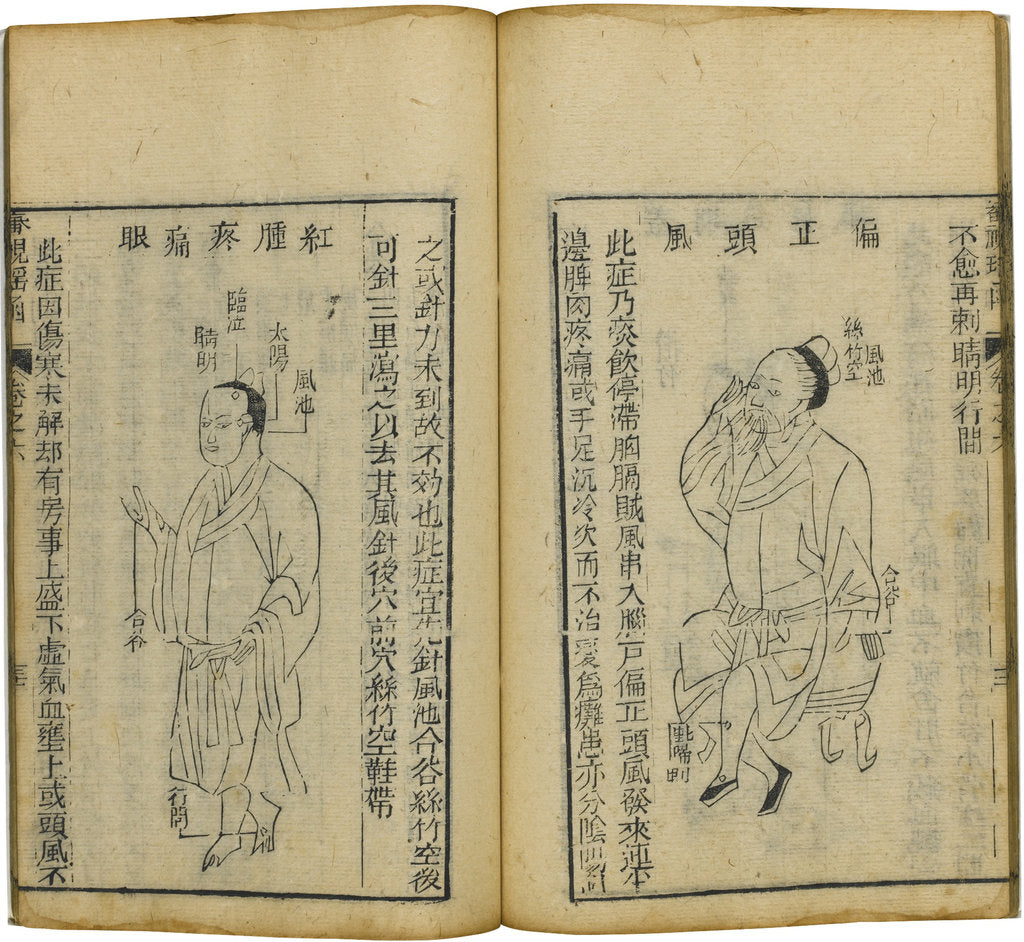 不愈再刺睛明行間
偏正頭風
風池
絲竹空
合谷
此症乃痰飲停滯胸膈賊風串入腦戶偏正頭風發來連半
邊脾肉疼痛或手足沉冷久而不治變為癱患亦分陰
之或針力未到故不効也此症宜先針風池合谷絲竹空後
可針三里瀉之以去其風針後穴前穴絲竹空鞋帶
紅腫疼痛眼
風池
太陽
臨泣
睛明
合谷
行間
此症因傷寒未解却有房事上盛下虛氣血壅上或頭風不
審視瑤函
卷之六